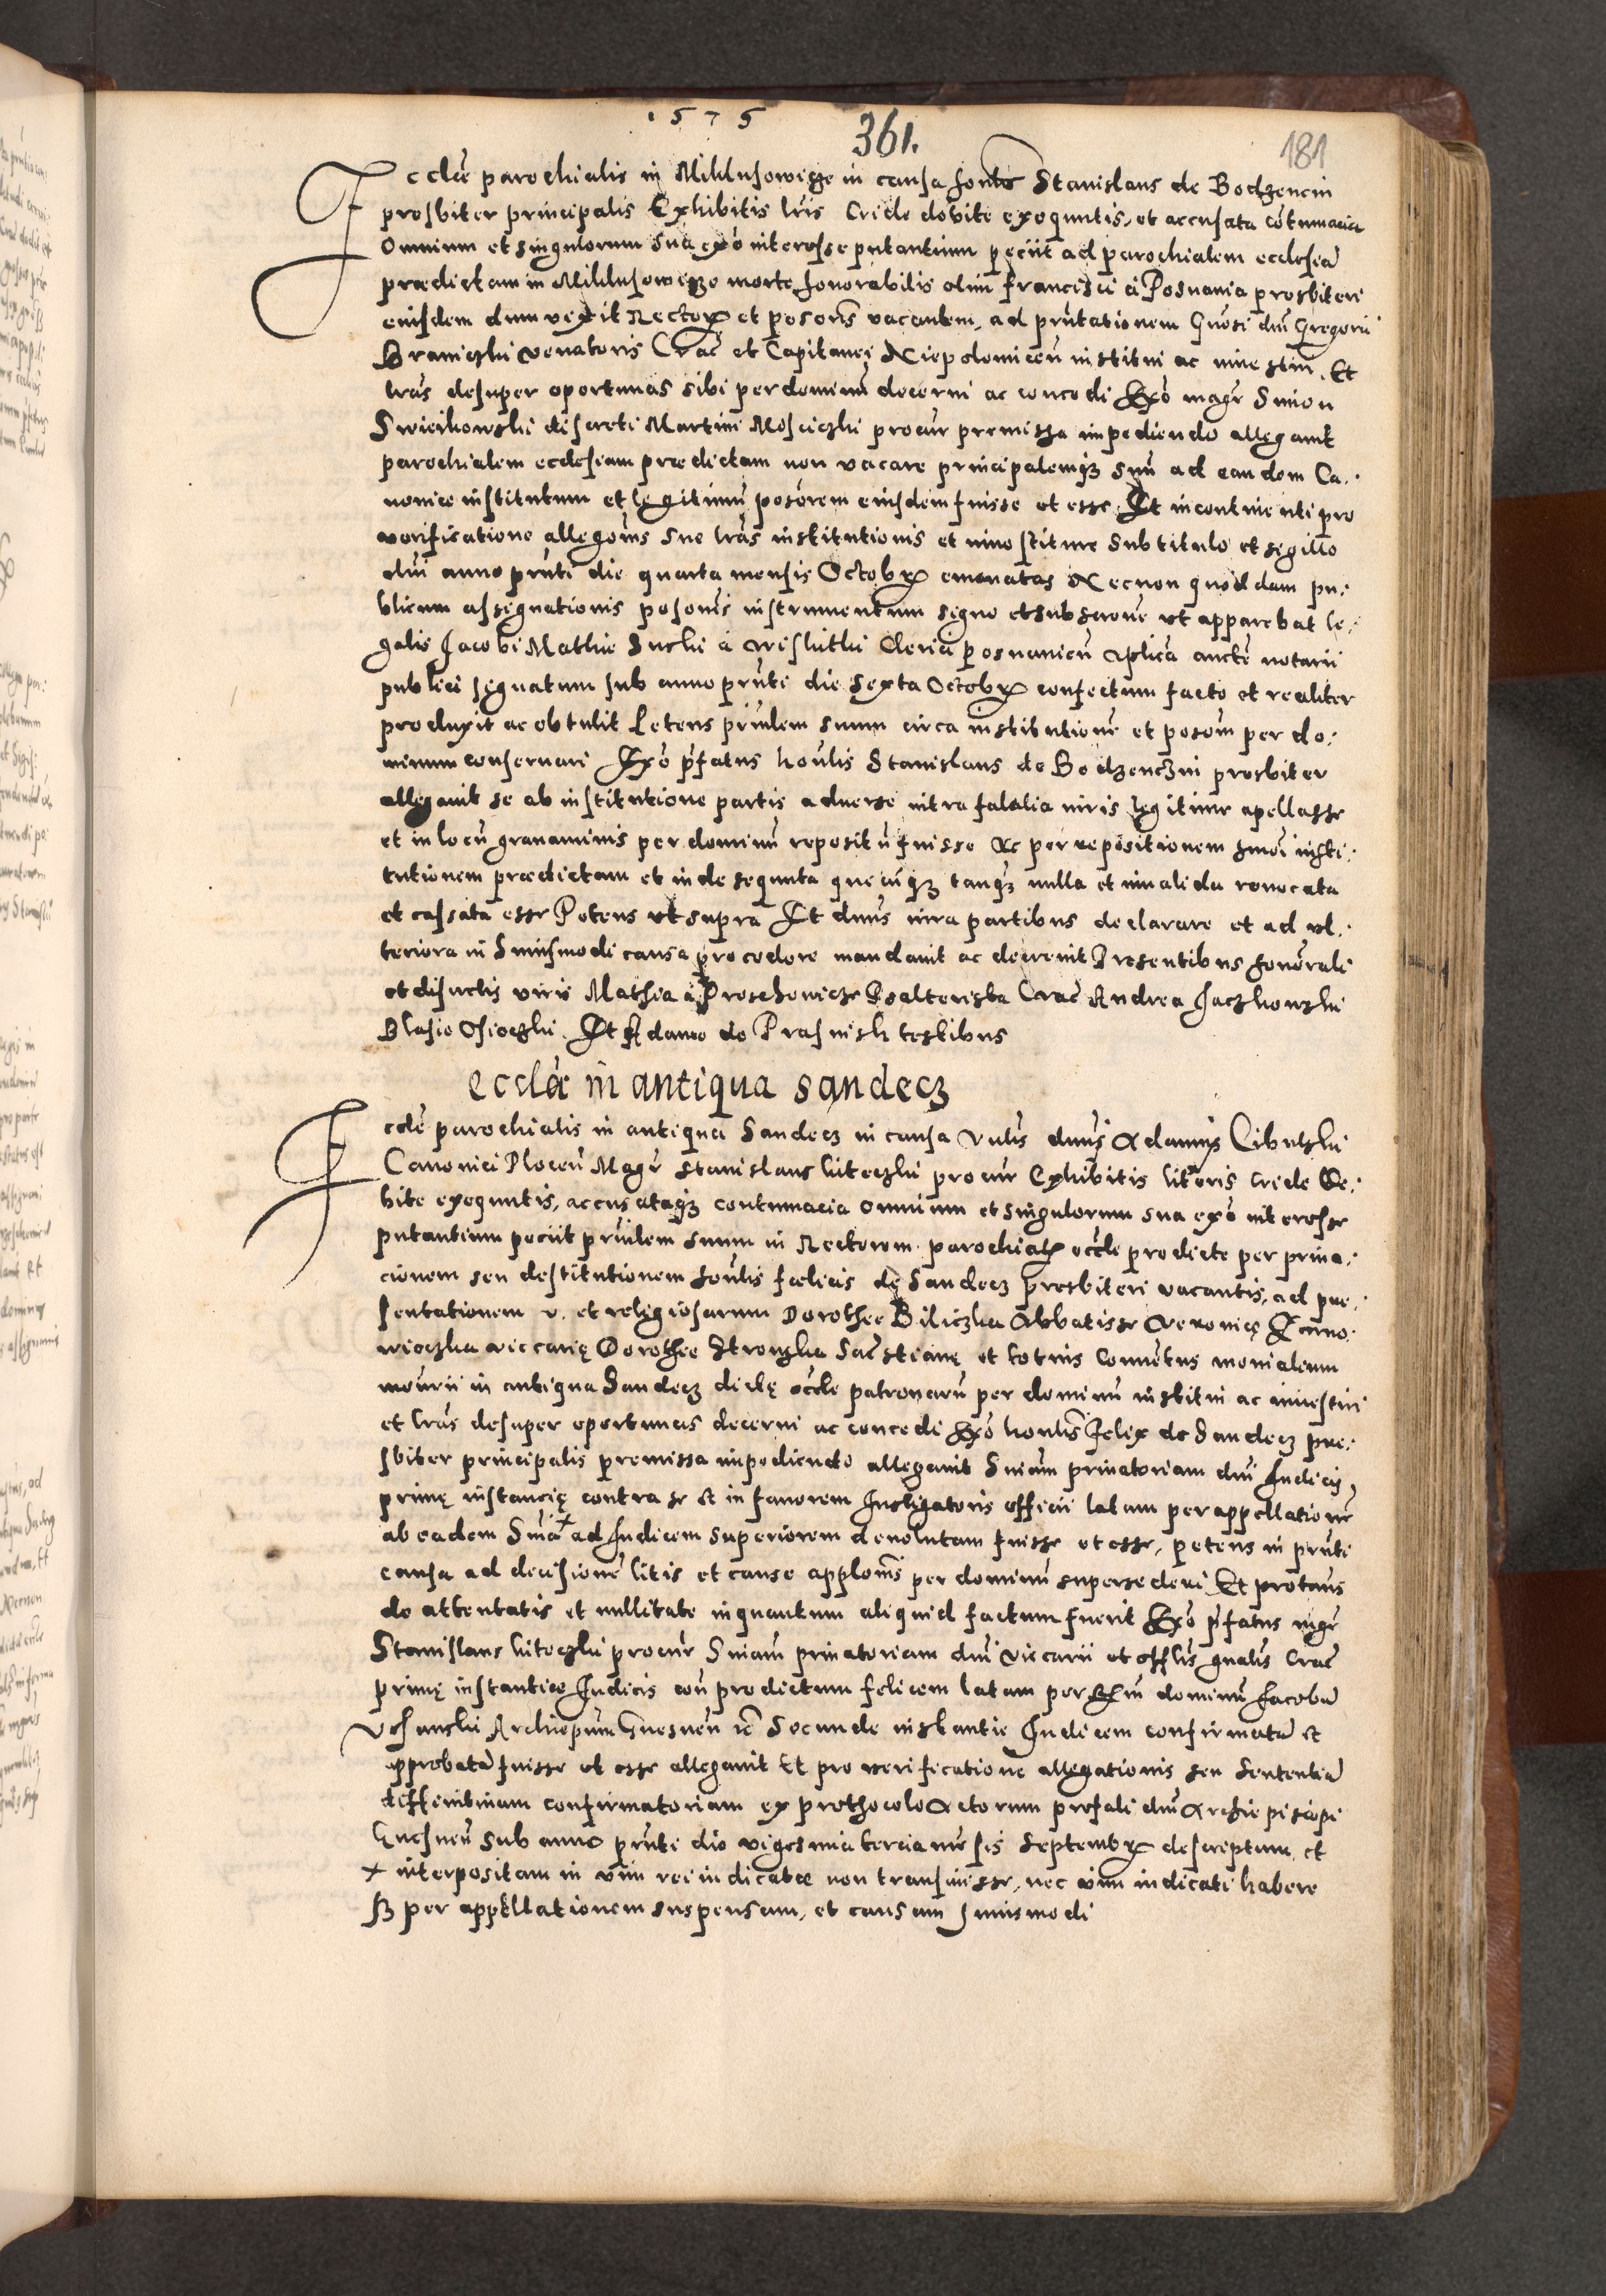 1575
361.
181
Ecclae parochialis in Mikluszowicze in causa honlis Stanislaus de Bodzencin
presbiter principalis Exhibitis lris Cridae debite exequutis, et accusata cotumacia
Omnium et singulorum sua exo interesse putantium peciit ad parochialem ecclesia
praedictam in Mikluszowicze morte honorabilis olim Francisci a Posnania presbiteri
eiusdem dum vixit Rector et posoris vacantem, ad pntationem Gnosi dni Gregorii
Braniczki venatoris Crac et Capitanei Niepolomicen institui ac inuestiri. Et
lras desuper oportunas sibi per dominu decerni ac concedi Exo magr Simon
Swiecikowski discreti Martini Mosciczki procur premissa impediendo allegauit
parochialem ecclesiam praedictam non vacare principalemqz suu ad eandem Ca:
nonice institutum et legitimu posorem eiusdem fuisse et esse Et incontinenti pro
verificatione allegonis sue lras institutionis et inuestiture sub titulo et sigillo
dni anno pnti die quarta mensis Octobr emanatas Necnon quoddam pu:
blicum assignationis posonis instrumentum signo et subscrone ut apparebat le:
galis Jacobi Mathie Suski a Wislithki Clerici posnanien aplica aucte notarii
publici signatum sub anno pnti die sexta Octobr confectum facto et realiter
produxit ac obtulit Petens prinlem suum circa institutione et posom per do:
minum conseruari Exo pfatus honlis Stanislaus de Bodzenczin presbiter
allegauit se ab institutione partis aduerse intra fatalia iuris legitime apellasse
et in locu grauaminis per dominu repositu fuisse Ac per repositionem hmoi insti:
tutionem praedictam et inde sequuta quecuqz tanqz nulla et inualida reuocata
et cassata esse Petens ut supra Et dnus iura partibus declarare et ad ul:
teriora in huiusmodi causa procedere mandauit ac decreuit Presentibus honorali
et discretis viris Mathia a Proschowicze Psalterista Crac Andrea Jaczkowski
Blasio Osieczki Et Adamo de Prasnisk testibus
ecclae in antiqua sandecz
Eccle parochialis in antiqua Sandecz in causa Vnlis dnus Adamus Cibulski
Canonici Plocen Magr Stanislaus Witeczki procur Exhibitis literis Cride De:
bite exequutis, accusataqz contumacia omnium et singulorum sua exo interesse
putantium peciit prinlem suum in Rectorem parochial eccle predicte per priua:
cionem seu destitutionem honlis foelicis de Sandecz presbiteri vacantis, ad prae:
sentationem v. et religiosarum Dorothee Biliczka Abbatisse Veronice
wieczka viccarię Dorothee Strońska Sacstianę et totius Conuentus monialium
monrii in antiqua Sandecz dictę eccle patronaru per dominu institui ac inuestiri
et lras desuper oportunas decerni ac concedi Exo honlis Felix de Sandecz pre:
sbiter principalis premissa impediendo allegauit Sniam priuatoriam dni Judicis
primę instancię contra se et in fauorem Instigatoris officii latam per appellatione
ab eadem Snia x ad Judicem superiorem deuolutam fuisse et esse, petens in pnti
causa ad decisione litis et cause applonis per dominu supersederi Et protans
de attentatis et nullitate inquantum aliquid factum fuerit Exo pfatus mgr
Stanislaus Witeczki procur Sniam priuatoriam dni viccarii et offlis gnalis Crac
primę instantiae Judicis con predictum felicem latam per Rm dominu Jacobu
Vchanski Archiepum Gnesnen ic Secunde instantie Judicem confirmata et
approbata fuisse et esse allegauit Et pro verificatione allegationis seu Sententia
diffinitiuam confirmatoriam ex prothocolo Actorum prefati dni Archiepiscopi
Gnesnen sub anno pnti die vigesimia tercia mensis Septembr descriptum et
x interpositam in vim rei iudicatae non transiuisse, nec vim iudicati habere
sz per appellationem suspensam, et causam huiusmodi